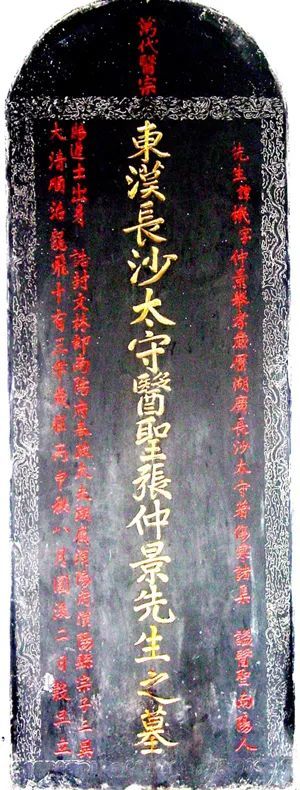 萬代醫宗
先生諱機字仲景舉孝廉歷湖廣長沙太守著傷寒諸集 諡醫聖南陽人
東漢長沙太守醫聖張仲景先生之墓
賜進士出身 誥封文林郎南陽府
大清順治龍飛十有三年歲在丙申秋八月